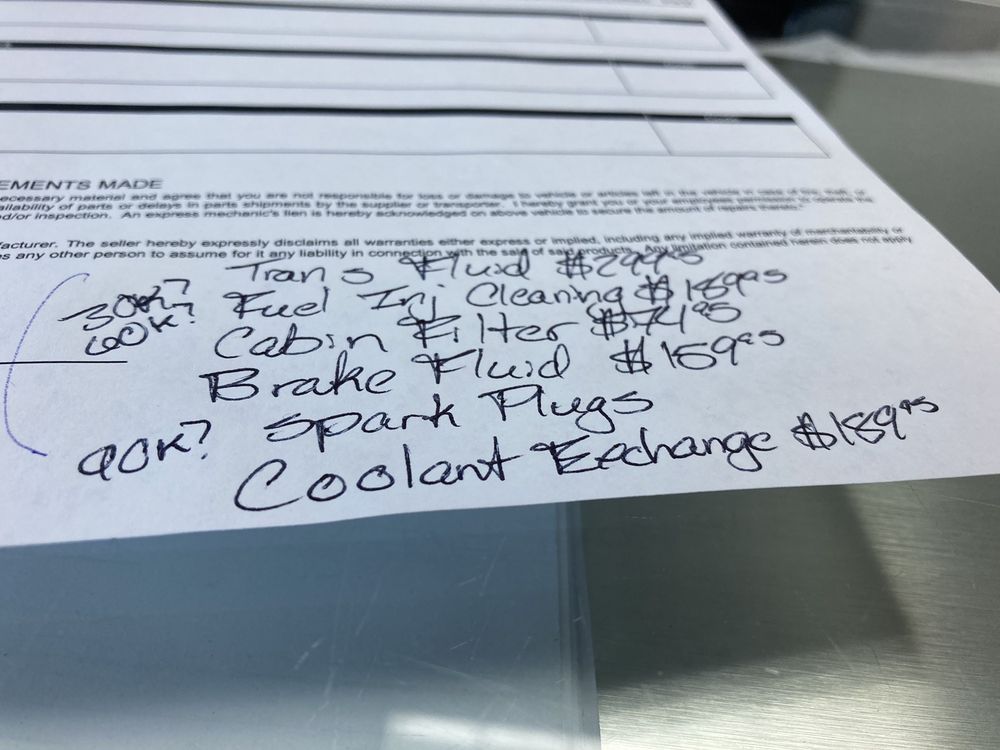 EMENTS MADE
ecessary material and agree that you are not responsible for loss or damage to vehicle or articles left in the vehicle in case of fire, theft, or
ailability of parts or delays in parts shipments by the supplier or transporter. I hereby grant you or your employees permission to operate the
d/or inspection. An express mechanic's lien is hereby acknowledged on above vehicle to secure the amount of repairs thereto.
acturer. The seller hereby expressly disclaims all warranties either express or implied, including any implied warranty of merchantability or
s any other person to assume for it any liability in connection with the sale of said products. Any limitation contained herein does not apply
Trans Fluid $299.95
30K? Fuel Inj Cleaning $189.95
60K? Cabin Filter $74.95
Brake Fluid $159.95
90K? Spark Plugs
Coolant Exchange $189.95